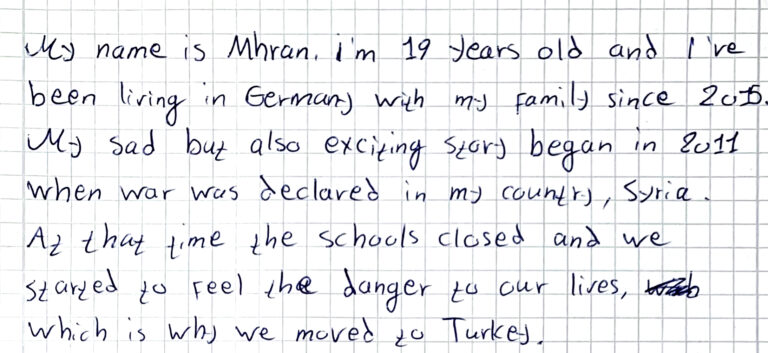 My name is Mhran. i'm 19 years old and I've
been living in Germany with my family since 2015.
My sad but also exciting story began in 2011
when war was declared in my country, Syria.
At that time the schools closed and we
started to feel the danger to our lives,
which is why we moved to Turkey.